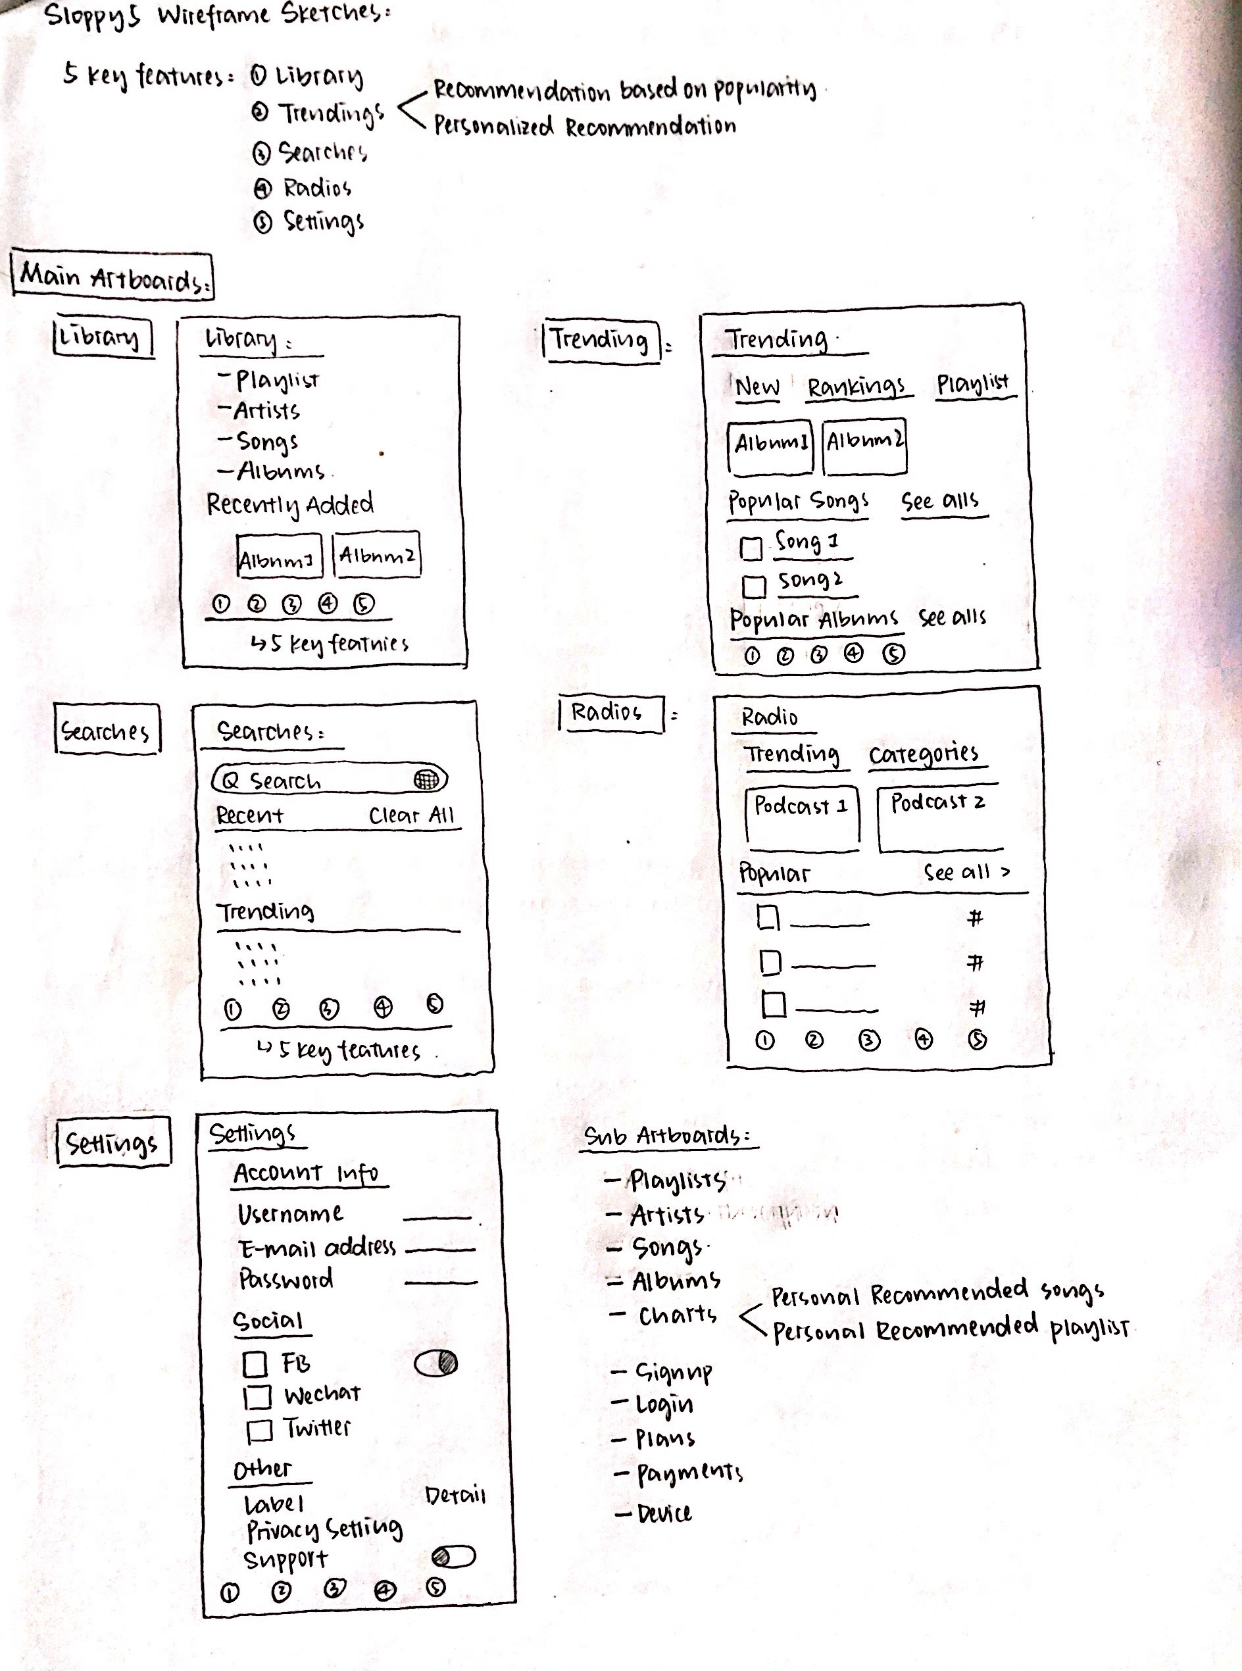 Sloppy5 Wireframe Sketches:
5 key features: ① Library
② Trendings
Recommendation based on popularity.
Personalized Recommendation
③ Searches
④ Radios
⑤ Settings
Main Artboards:
Library
Library:
- Playlist
- Artists
- Songs
- Albums.
Recently Added
Album1 Album2
① ② ③ ④ ⑤
↳ 5 key features
Trending :
Trending
New Rankings Playlist
Album1 Album2
Popular Songs See alls
Song 1
Song2
Popular Albums See alls
① ② ③ ④ ⑤
Searches
Searches:
Search
Recent Clear All
Trending
① ② ③ ④ ⑤
↳ 5 key features.
Radios :
Radio
Trending Categories
Podcast 1 Podcast 2
Popular See all >
#
#
#
① ② ③ ④ ⑤
Settings
Settings
Account Info
Username
E-mail address
Password
Social
FB
Wechat
Twitter
Other
Label Detail
Privacy Setting
Support
① ② ③ ④ ⑤
Sub Artboards:
- Playlists
- Artists
- Songs
- Albums
- Charts
Personal Recommended songs
Personal Recommended playlist
- Signup
- Login
- Plans
- Payments
- Device